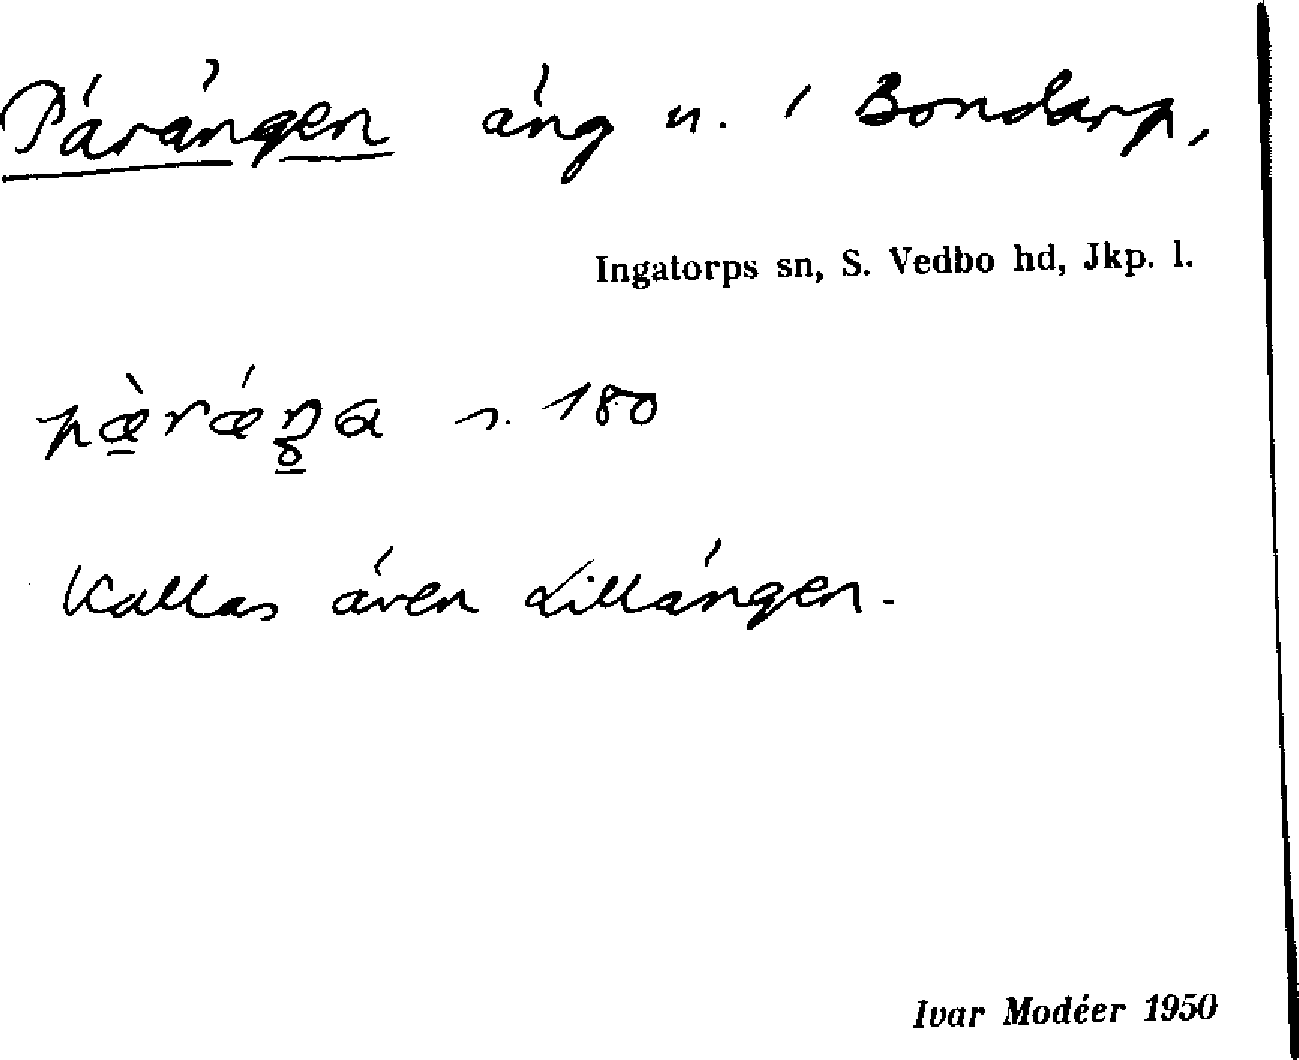 Pärängen äng n. i Bondarp,
Ingatorps sn, S. Vedbo hd, Jkp. l.
s. 180
Kallas även Lillängen.
Ivar Modéer 1950